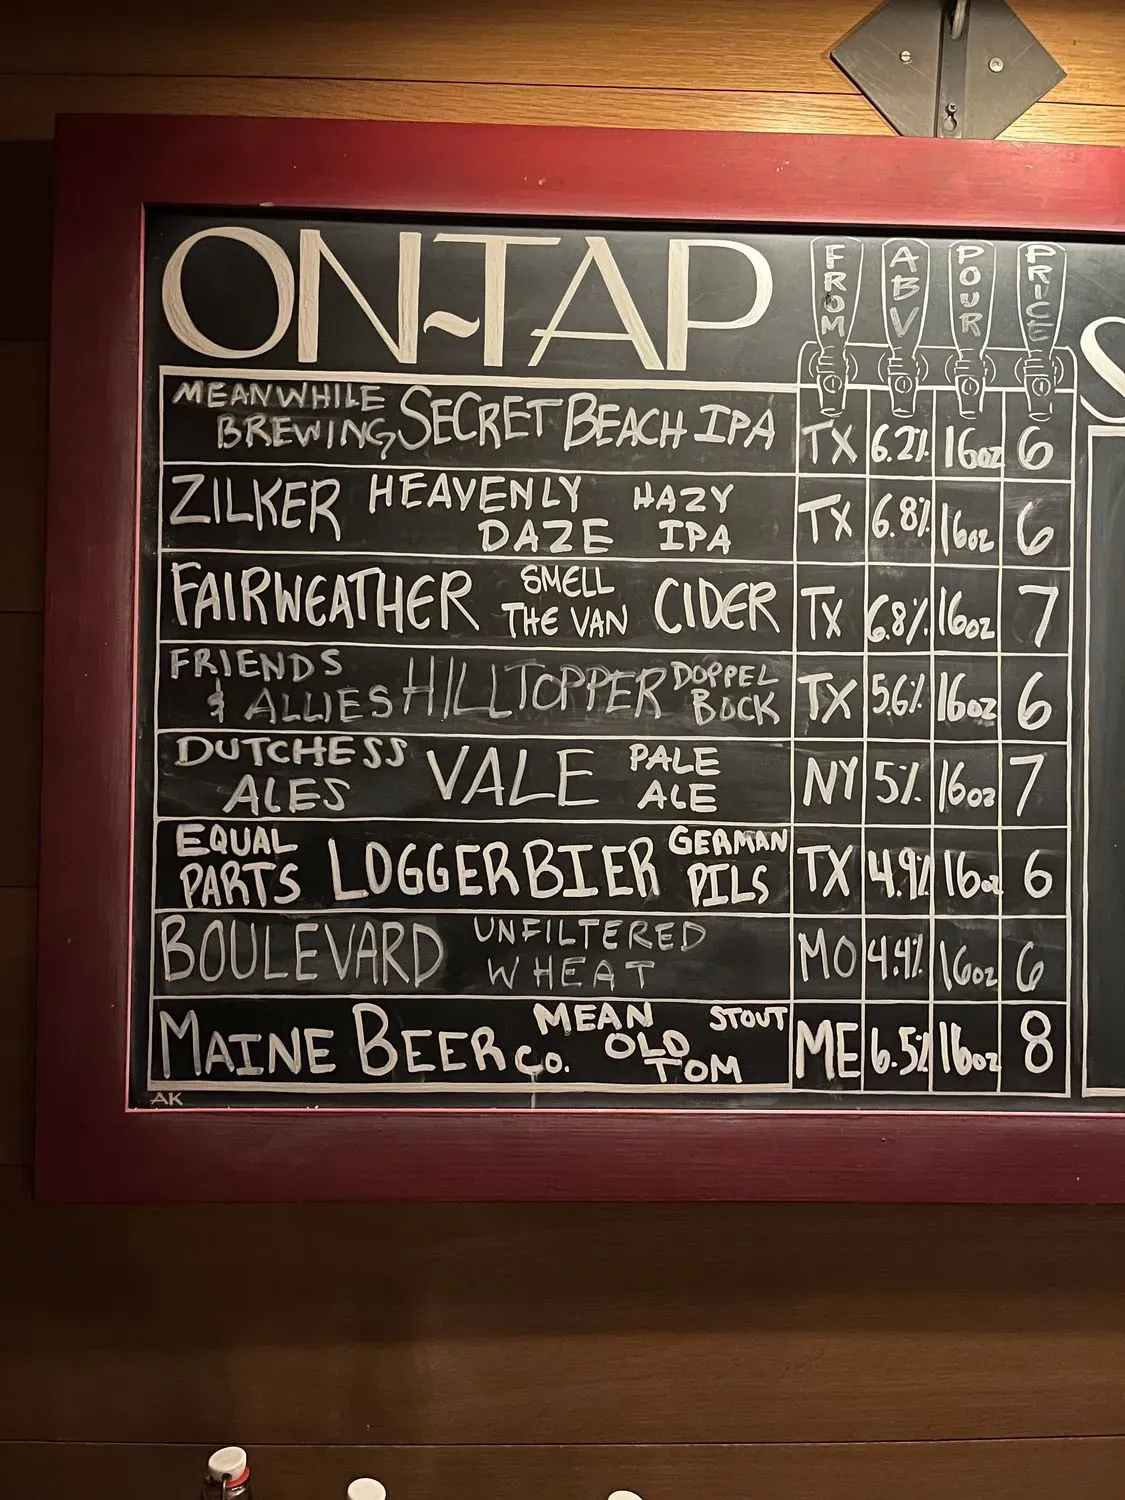 ON-TAP FROM ABV POUR PRICE
MEANWHILE BREWING SECRET BEACH IPA TX 6.2% 16oz 6
ZILKER HEAVENLY DAZE HAZY IPA TX 6.8% 16oz 6
FAIRWEATHER SMELL THE VAN CIDER TX 6.8% 16oz 7
FRIENDS & ALLIES HILLTOPPER DOPPEL BOCK TX 5.6% 16oz 6
DUTCHESS ALES VALE PALE ALE NY 5% 16oz 7
EQUAL PARTS LOGGERBIER GERMAN PILS TX 4.9% 16oz 6
BOULEVARD UNFILTERED WHEAT MO 4.4% 16oz 6
MAINE BEER Co. MEAN OLD TOM STOUT ME 6.5% 16oz 8
AK